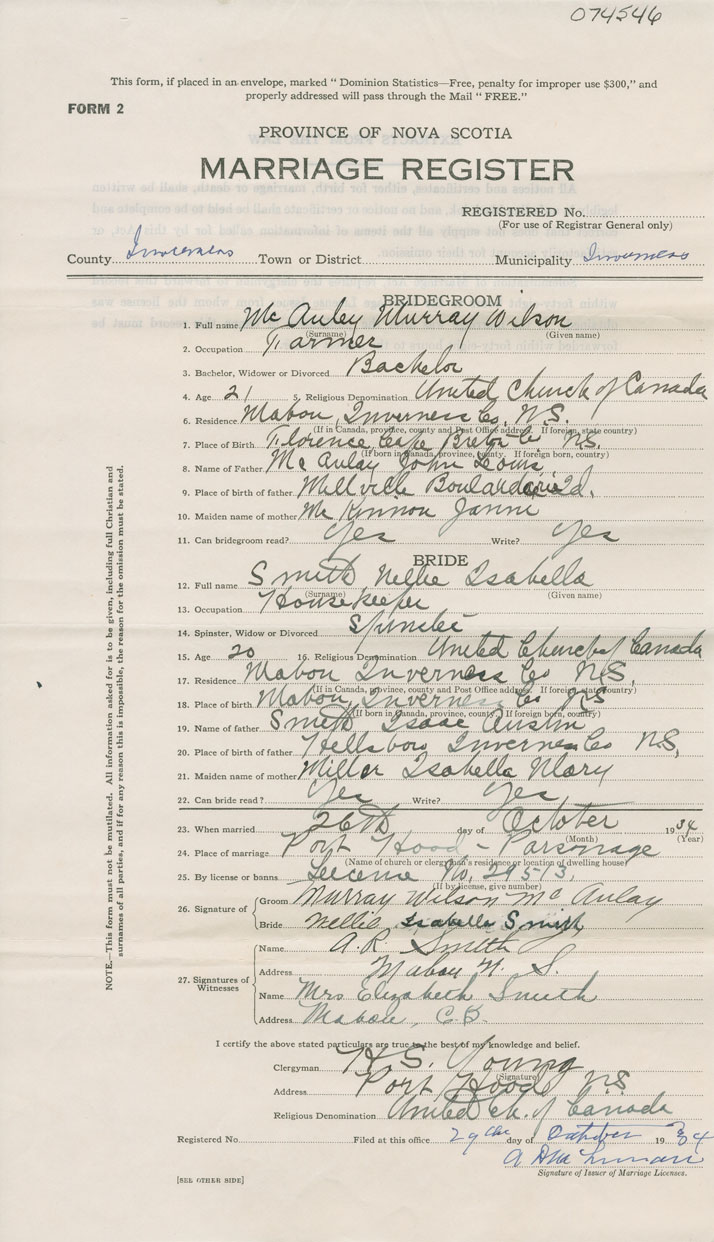 074546
This form, if placed in an envelope, marked “ Dominion Statistics—Free, penalty for improper use $300,” and
properly addressed will pass through the Mail “ FREE.”
FORM 2
PROVINCE OF NOVA SCOTIA
MARRIAGE REGISTER
REGISTERED No.
(For use of Registrar General only)
County Inverness Town or District Municipality Inverness
BRIDEGROOM
1. Full name Mc Auley Murray Wilson
(Surname) (Given name)
2. Occupation Farmer
3. Bachelor, Widower or Divorced Bachelor
4. Age 21 5. Religious Denomination United Church of Canada
6. Residence Mabou Inverness Co. N.S.
(If in Canada, province, county and Post Office address. If foreign, state country)
7. Place of Birth Florence Cape Breton Co N.S.
(If born in Canada, province, county. If foreign born, country)
8. Name of Father Mc Aulay John Louis
9. Place of birth of father Millville Boularderie
10. Maiden name of mother Mc Kinnon Jannie
11. Can bridegroom read? Yes Write? Yes
BRIDE
12. Full name Smith Nellie Isabella
(Surname) (Given name)
13. Occupation Housekeeper
14. Spinster, Widow or Divorced
15. Age 20 16. Religious Denomination United Church of Canada
17. Residence Mabou Inverness Co N.S.
(If in Canada, province, county and Post Office address. If foreign state country)
18. Place of birth Mabou Inverness Co N.S
(If born in Canada, province, county, If foreign born, country)
19. Name of father Smith Isaac Austin
20. Place of birth of father Hillsboro Inverness Co N.S,
21. Maiden name of mother Miller Isabella Mary
22. Can bride read? Yes Write? Yes
23. When married 26th day of October 1934
(Month) (Year)
24. Place of marriage Port Hood - Parsonage
(Name of church or clergyman's residence or location of dwelling house)
25. By license or banns License No. 29513.
(If by license, give number)
26. Signature of
Groom Murray Wilson McAulay
Bride Nellie Isabella Smith
27. Signatures of Witnesses
Name A.R. Smith
Address Mabou N. S.
Name Mrs Elizabeth Smith
Address Mabou, C.B.
I certify the above stated particulars are true to the best of my knowledge and belief.
Clergyman H.S. Young
(Signature)
Address Port Hood N.S
Religious Denomination United Ch. of Canada
Registered No. Filed at this office 29th day of October 1934
Signature of Issuer of Marriage Licenses.
[SEE OTHER SIDE]
NOTE.—This form must not be mutilated. All information asked for is to be given, including full Christian and
surnames of all parties, and if for any reason this is impossible, the reason for the omission must be stated.